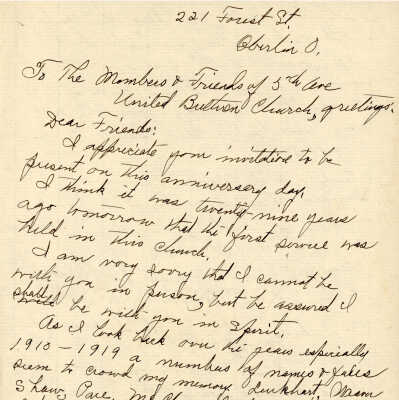 221 Forest St.
Oberlin O.
To The Members & Friends of 5th Ave
United Brethren Church, greetings.
Dear Friends:
I appreciate your invitation to be
present on this anniversary day.
I think it was twenty-nine years
ago tomorrow that the first service was
held in this church.
I am very sorry that I cannot be
with you in person, but be assured I
shall be with you in spirit.
As I look back over the years especially
1910-1919 a numbers of names & faces
seem to crowd my memory. Lenkhart,
Shaw, Pace,